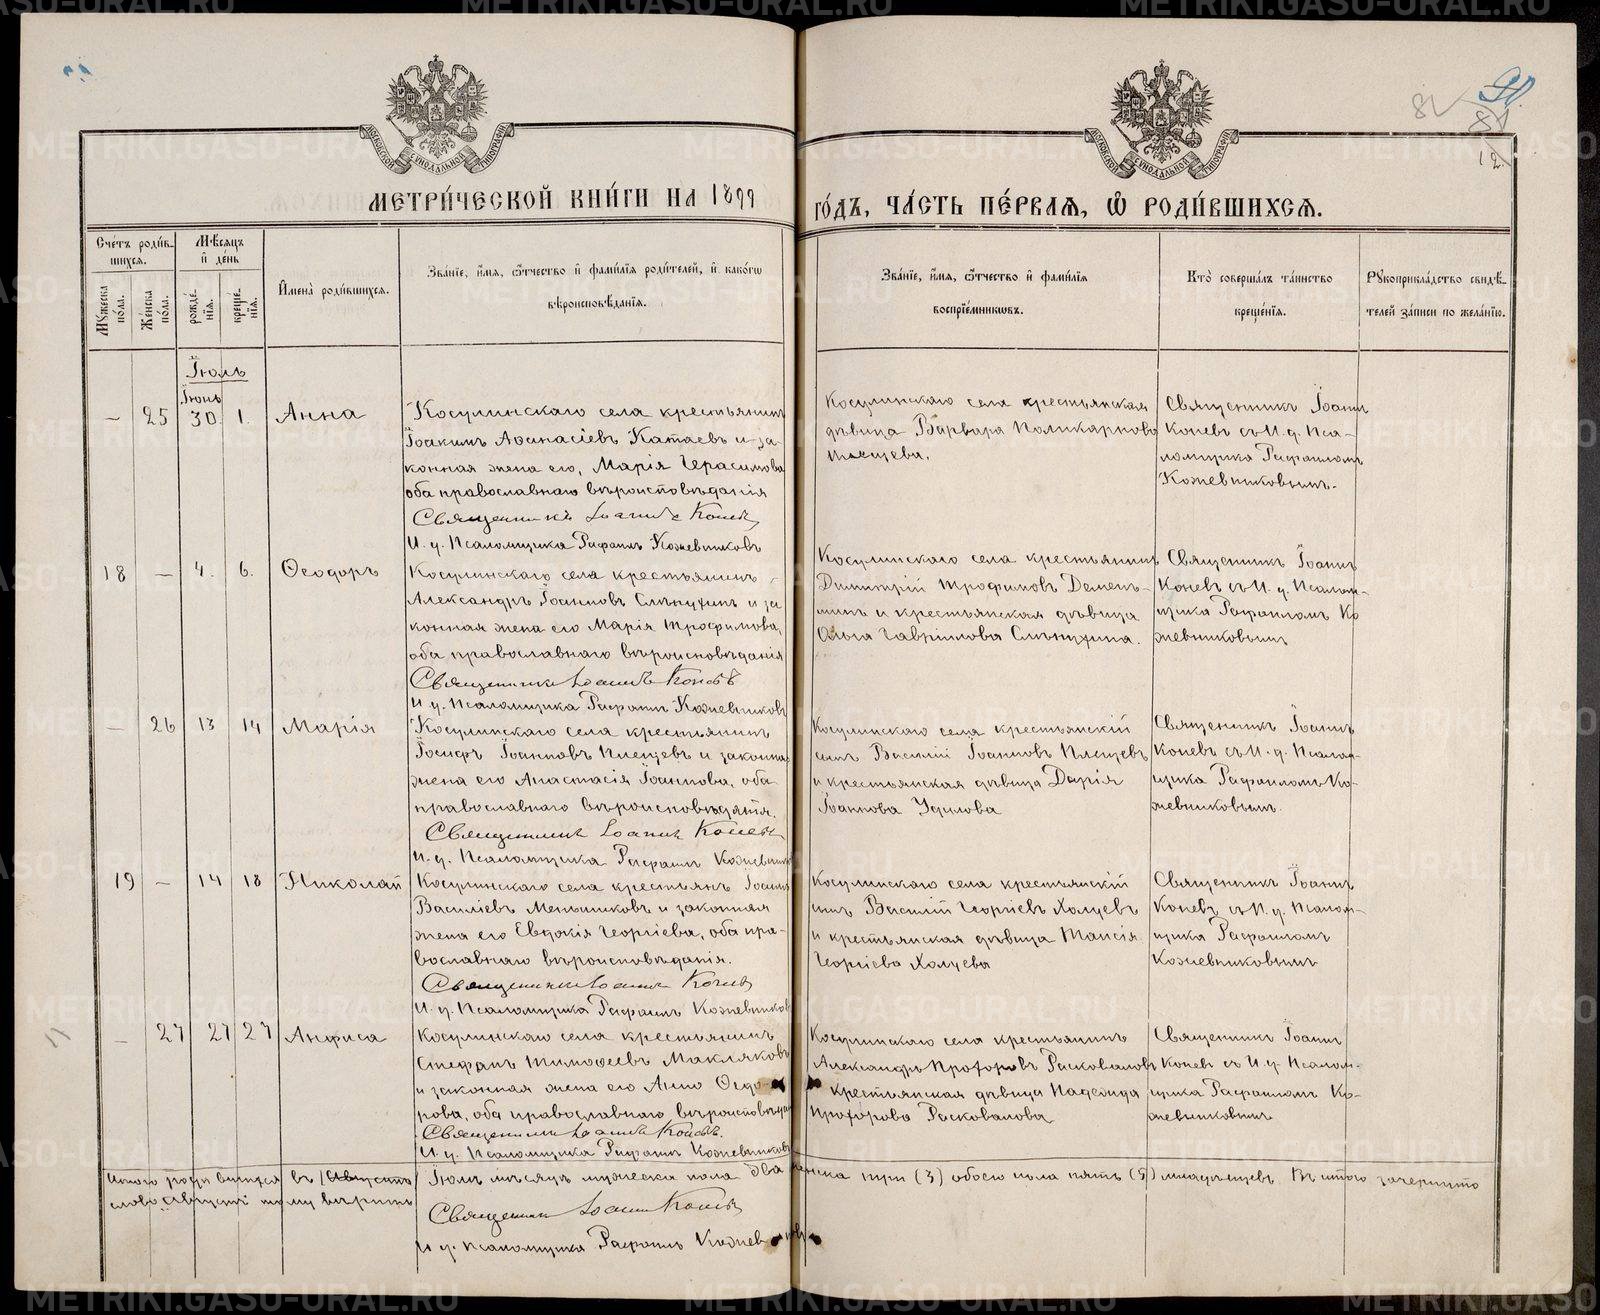 МЕТРИ́ЧЕСКОЙ КНИ́ГИ НА 1899
ГО́ДЪ, ЧА́СТЬ ПЕ́РВАЯ, Ѽ РОДИ́ВШИХСѦ.
Сче́тъ роди́в-
шихсѧ.
Мѣ́сѧцъ
и҆ де́нь
Мꙋ́жеска
по́ла.
Же́нска
по́ла.
рожде́-
нїѧ.
креще́-
нїѧ.
И҆мена̀ роди́вшихсѧ.
Зва́нїе, и҆́мѧ, ѻ҆́тчество и҆ фами́лїѧ роди́телей, и҆ како́гѡ
вѣроисповѣ́данїѧ.
Зва́нїе, и҆́мѧ, ѻ҆́тчество и҆ фами́лїѧ
воспрїе́мникѡвъ.
Кто̀ соверша́лъ та́инство
креще́нїѧ.
Рꙋкоприкла́дство свидѣ́-
телей за́писи по жела́нїю.
Іюль
Іюнь
— 25 30. 1. Анна
Косулинскаго села крестьянинъ
Іоакимъ Аѳанасіевъ Катаевъ и за-
конная жена его, Марія Герасимова
оба православнаго вѣроисповѣданія
Священникъ Іоаннъ Коневъ
И. д. Псаломщика Рафаилъ Кожевниковъ
Косулинскаго села крестьянская
дѣвица Варвара Поликарпова
Священникъ Іоаннъ
Коневъ съ И. д. Пса-
ломщика Рафаиломъ
Кожевниковымъ.
18 — 4. 6. Ѳеодоръ
Косулинскаго села крестьянинъ
Александръ Іоанновъ и за
конная жена его Марія Трофимова,
оба православнаго вѣроисповѣданія
Священникъ Іоаннъ Коневъ
И. д. Псаломщика Рафаилъ Кожевниковъ
Косулинскаго села крестьянинъ
Димитрій Трофимовъ Демен-
и крестьянская дѣвица
Ольга Гавріилова
Священникъ Іоаннъ
Коневъ съ И. д. Псалом-
щика Рафаиломъ Ко
жевниковымъ
— 26 13 14 Марія
Косулинскаго села крестьянинъ
Іосифъ Іоанновъ Плещевъ и законная
жена его Анастасія Іоаннова, оба
православнаго вѣроисповѣданія.
Священникъ Іоаннъ Коневъ
И. д. Псаломщика Рафаилъ Кожевник
Косулинскаго села крестьянскій
сынъ Василій Іоанновъ Плещевъ
и крестьянская дѣвица Дарія
Іоаннова
Священникъ Іоаннъ
Коневъ съ И. д. Псалом-
щика Рафаиломъ Ко-
жевниковымъ.
19 — 14 18 Николай
Косулинскаго села крестьянъ Іоаннъ
Василіевъ Меньшиковъ и законная
жена его Евдокія Георгіева, оба пра-
вославнаго вѣроисповѣданія.
Священникъ Іоаннъ Коневъ
И. д. Псаломщика Рафаилъ Кожевников
Косулинскаго села крестьянскій
сынъ Василій Георгіевъ Холуевъ
и крестьянская дѣвица Таисія
Георгіева Холуева
Священникъ Іоаннъ
Коневъ съ И. д. Псалом-
щика Рафаиломъ
Кожевниковымъ
— 27 27 27 Анфиса
Косулинскаго села крестьянинъ
Стефанъ Тимофеевъ Макляковъ
и законная жена его Анна Ѳеодо-
рова, оба православнаго вѣроисповѣдан
Священникъ Іоаннъ Коневъ.
И. д. Псаломщика Рафаилъ Кожевниковъ
Косулинскаго села крестьянинъ
Александръ Прохоровъ Расковаловъ
крестьянская дѣвица Надежда
Прохорова Расковалова
Священникъ Іоаннъ
Коневъ съ И. д. Псалом-
щика Рафаиломъ Ко-
жевниковымъ
Итого родившихся въ (Августѣ) Іюлѣ мѣсяцѣ мужеска пола два женска три (3) обоего пола пять (5) младенцевъ. Въ итого зачеркнуто
слово Августѣ тому вѣрить
Священникъ Іоаннъ Коневъ
И д. Псаломщика Рафаилъ Кожевниковъ